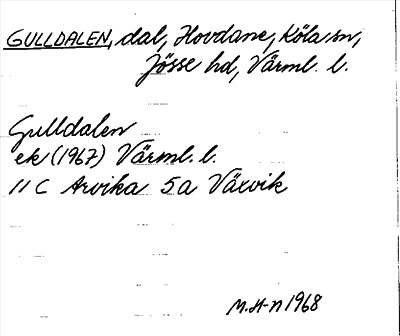 GULLDALEN, dal, Hovdane, Köla sn,
Jösse hd, Värml. l.
Gulldalen
ek (1967) Värml. l.
11 C Arvika 5a Växvik
M. H-n 1968